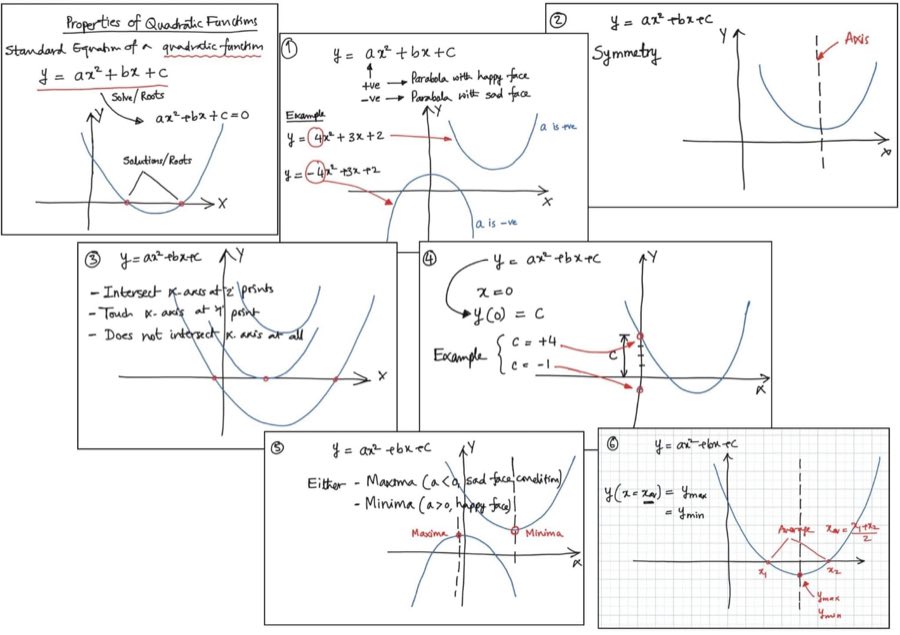 Properties of Quadratic Functions
Standard Equation of a quadratic function
y = ax² + bx + c
Solve/Roots
ax² + bx + c = 0
Y
Solutions/Roots
X
①
y = ax² + bx + c
+ve → Parabola with happy face
-ve → Parabola with sad face
Example
Y
y = 4x² + 3x + 2
a is +ve
y = -4x² + 3x + 2
X
a is -ve
②
y = ax² + bx + c
Symmetry
Y
Axis
x
③ y = ax² + bx + c
Y
- Intersect x-axis at '2' points
- Touch x-axis at '1' point
- Does not intersect x-axis at all
X
④
y = ax² + bx + c
Y
x = 0
y(0) = c
Example
c = +4
c = -1
C
x
⑤
y = ax² + bx + c
Y
Either - Maxima (a<0, sad face condition)
- Minima (a>0, happy face)
Maxima
Minima
x
⑥
y = ax² + bx + c
y(x = xav) = ymax
= ymin
Average
xav = x₁+x₂/2
x₁
x₂
ymax
ymin